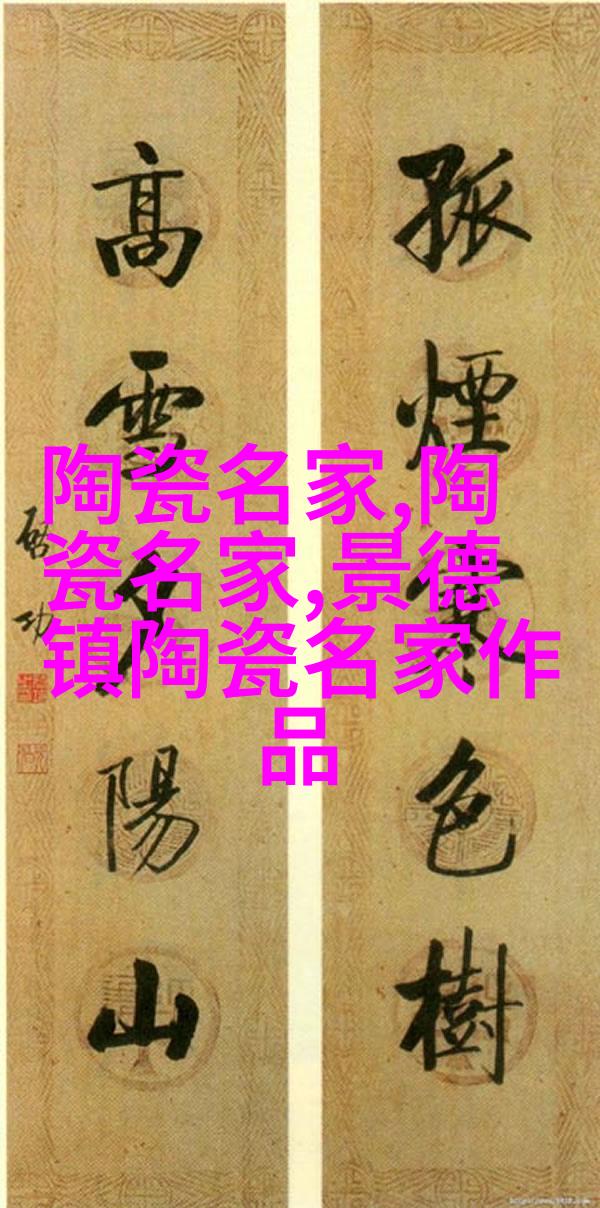 孤煙寒色樹
高雪夕陽山
启功
陶瓷名家,陶
瓷名家,景德
镇陶瓷名家作
品